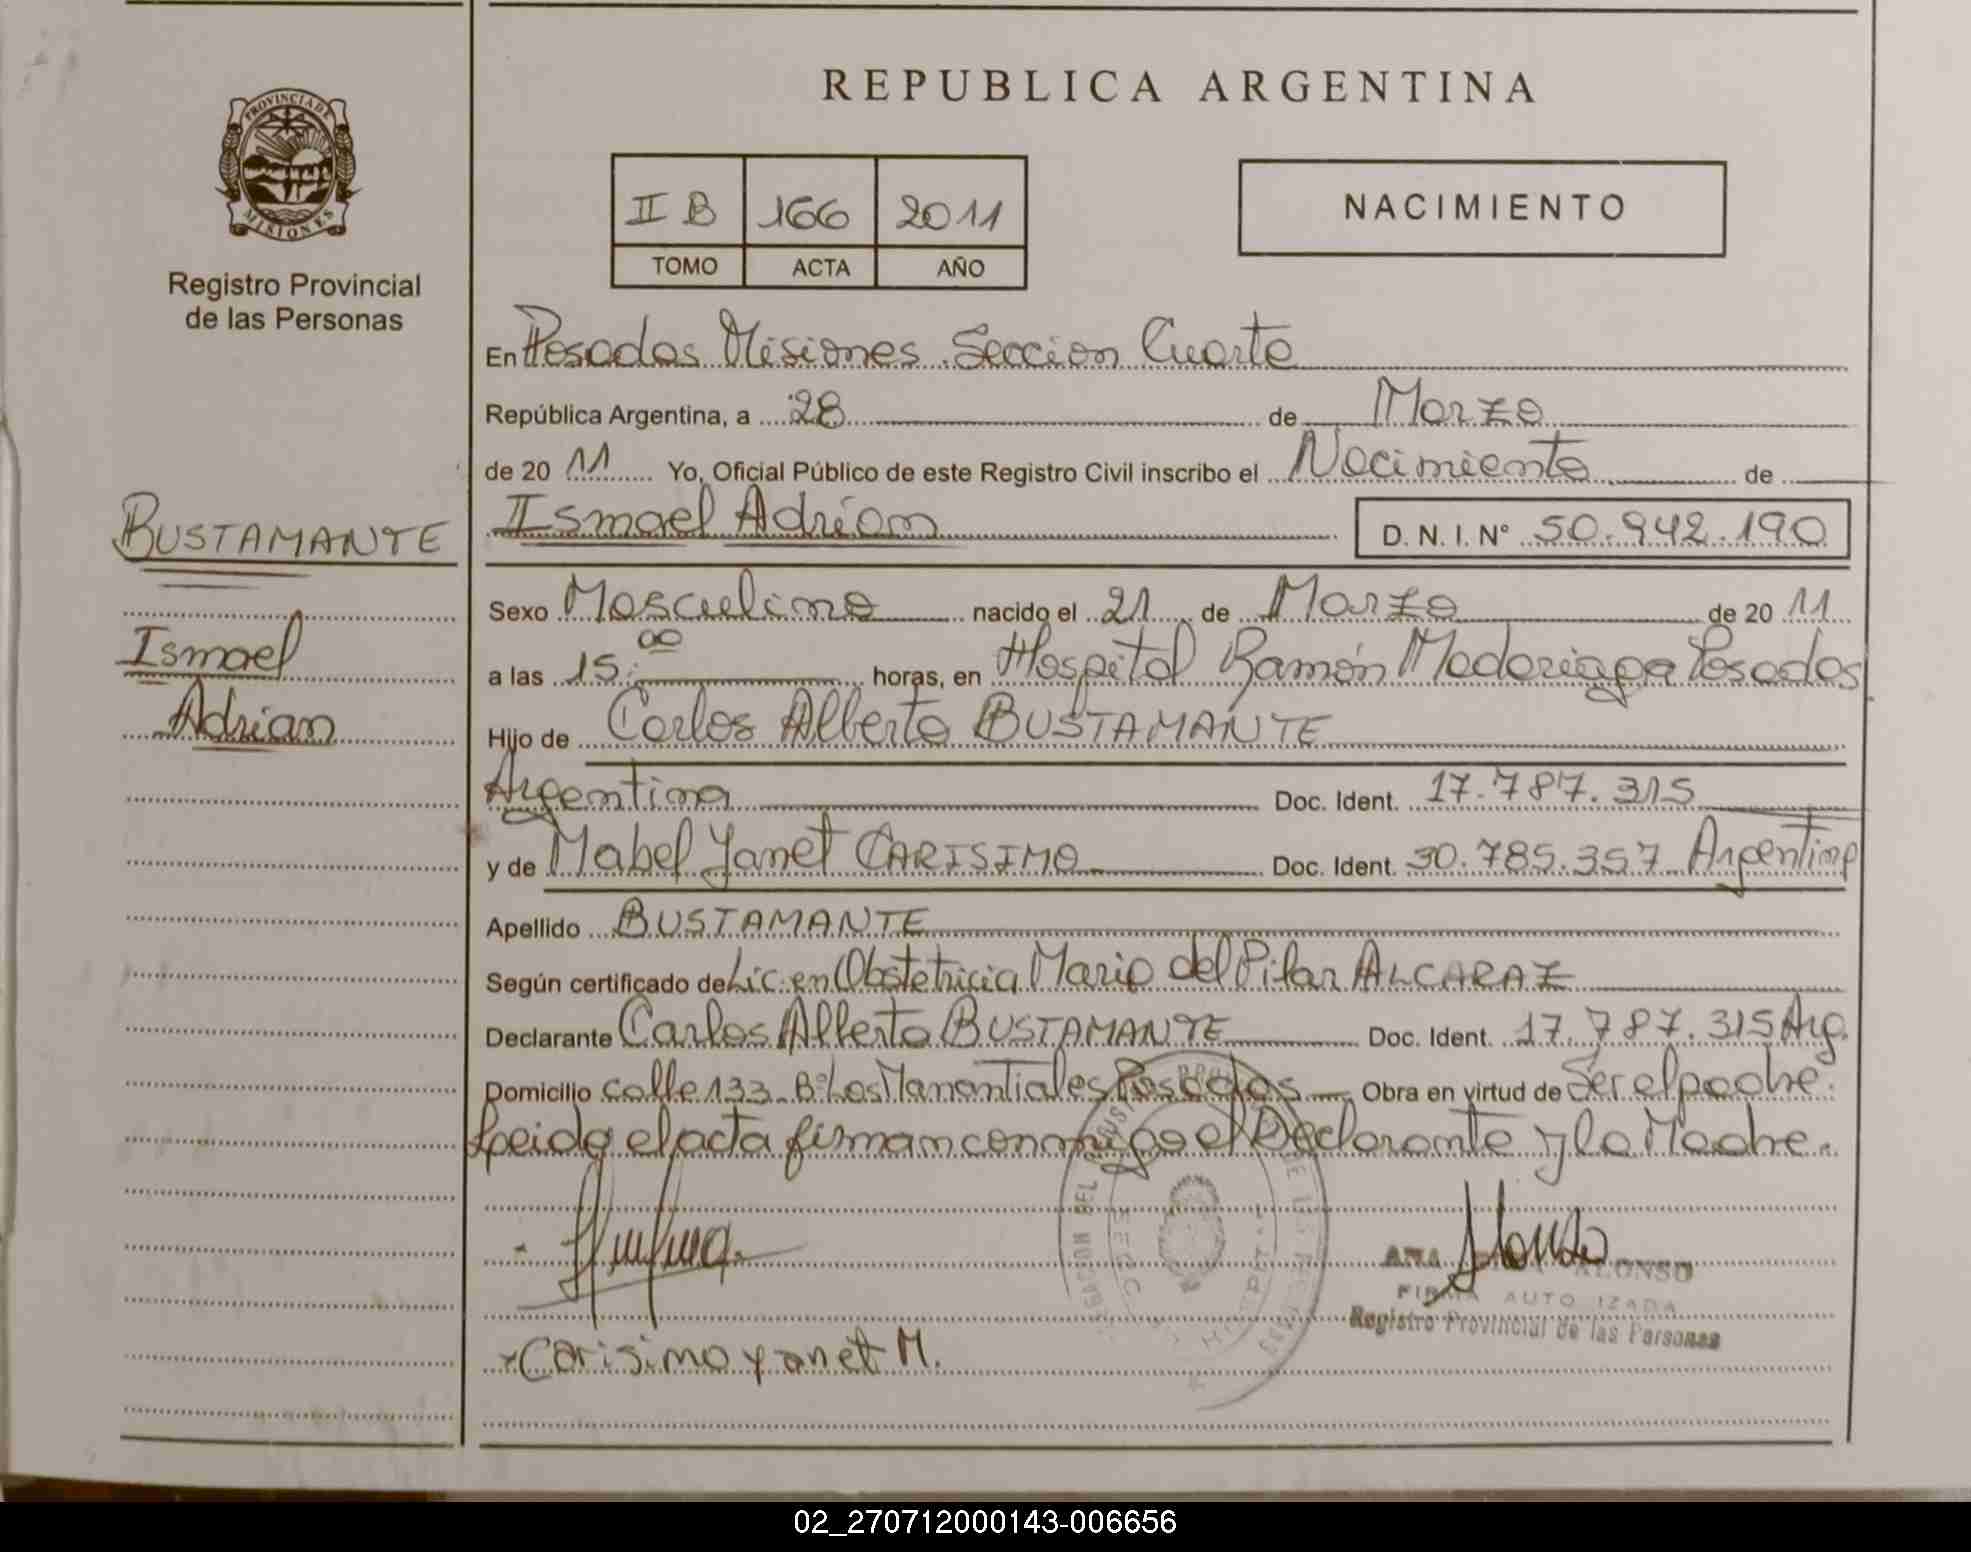 REPUBLICA ARGENTINA
PROVINCIA DE
MISIONES
Registro Provincial
de las Personas
II B 166 2011
TOMO ACTA AÑO
NACIMIENTO
En Posadas Misiones Seccion Cuarta
República Argentina, a 28 de Marzo
de 20 11 Yo, Oficial Público de este Registro Civil inscribo el Nacimiento de
Ismael Adrian
D. N. I. Nº 50.942.190
BUSTAMANTE
Ismael
Adrian
Sexo Masculino nacido el 21 de Marzo de 20 11
a las 15:00 horas, en Hospital Ramón Madariaga Posadas
Hijo de Carlos Alberto BUSTAMANTE
Argentina Doc. Ident. 17.787.315
y de Mabel Yanet CARISIMO Doc. Ident. 30.785.357 Argentina
Apellido BUSTAMANTE
Según certificado de Lic. en Obstetricia Maria del Pilar ALCARAZ
Declarante Carlos Alberto BUSTAMANTE Doc. Ident. 17.787.315 Arg.
Domicilio calle 133 Bº Los Manantiales Posadas Obra en virtud de Ser el padre.
Leida el acta firman conmigo el Declarante y la Madre.
ANA ALONSO
FIRMA AUTO IZADA
Registro Provincial de las Personas
Carisimo yanet M.
02_270712000143-006656